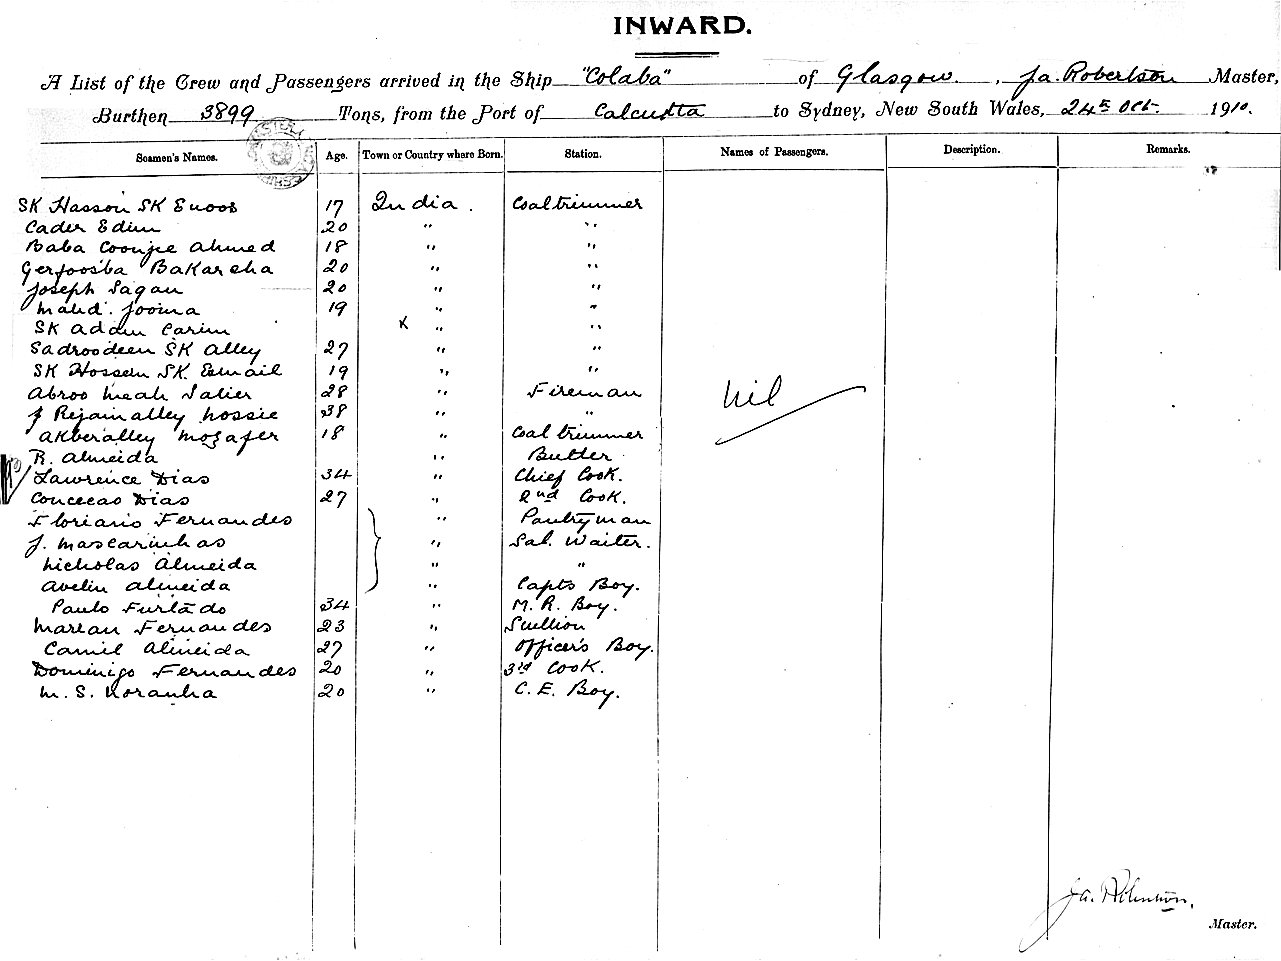 INWARD.
A List of the Crew and Passengers arrived in the Ship "Colaba" of Glasgow, Ja. Robertson Master,
Burthen 3899 Tons, from the Port of Calcutta to Sydney, New South Wales, 24th Oct. 1910.
Seamen's Names. Age. Town or Country where Born. Station. Names of Passengers. Description. Remarks.
SK Hasson SK Enoos 17 India. Coaltrimmer
Cader Edim 20 " "
Baba Coonjee Ahmed 18 " "
Gerfoosba Bakareha 20 " "
Joseph Sagau 20 " "
Mahd. Jooma 19 " "
SK Adam Carim x " "
Sadroodeen SK Alley 27 " "
SK Hossein SK. Esmail 19 " "
Abroo Meah Salier 28 " Fireman
Nil
J Rejamalley Hossie 38 " "
Akberalley Mozafer 18 " Coal trimmer
R. Almeida " Butler
Lawrence Dias 34 " Chief Cook.
Concecao Dias 27 " 2nd Cook.
Floriano Fernandes " Pantryman
J. Mascarinhas " Sal. Waiter.
Nicholas Almeida " "
Avelin Almeida " Capts Boy.
Paulo Furtado 34 " M. R. Boy.
Marian Fernandes 23 " Scullion
Camil Almeida 27 " Officers Boy.
Domingo Fernandes 20 " 3rd Cook.
M. S. Noranha 20 " C. E. Boy.
Ja. Robertson.
Master.